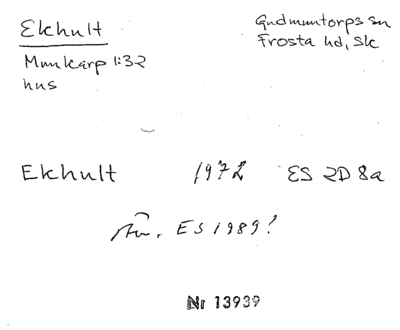 Ekhult
Gudmuntorps sn
Frosta hd, Sk
Munkarp 1:32
hus
Ekhult 1972 ES 2D 8a
ES 1989!
Nr 13939